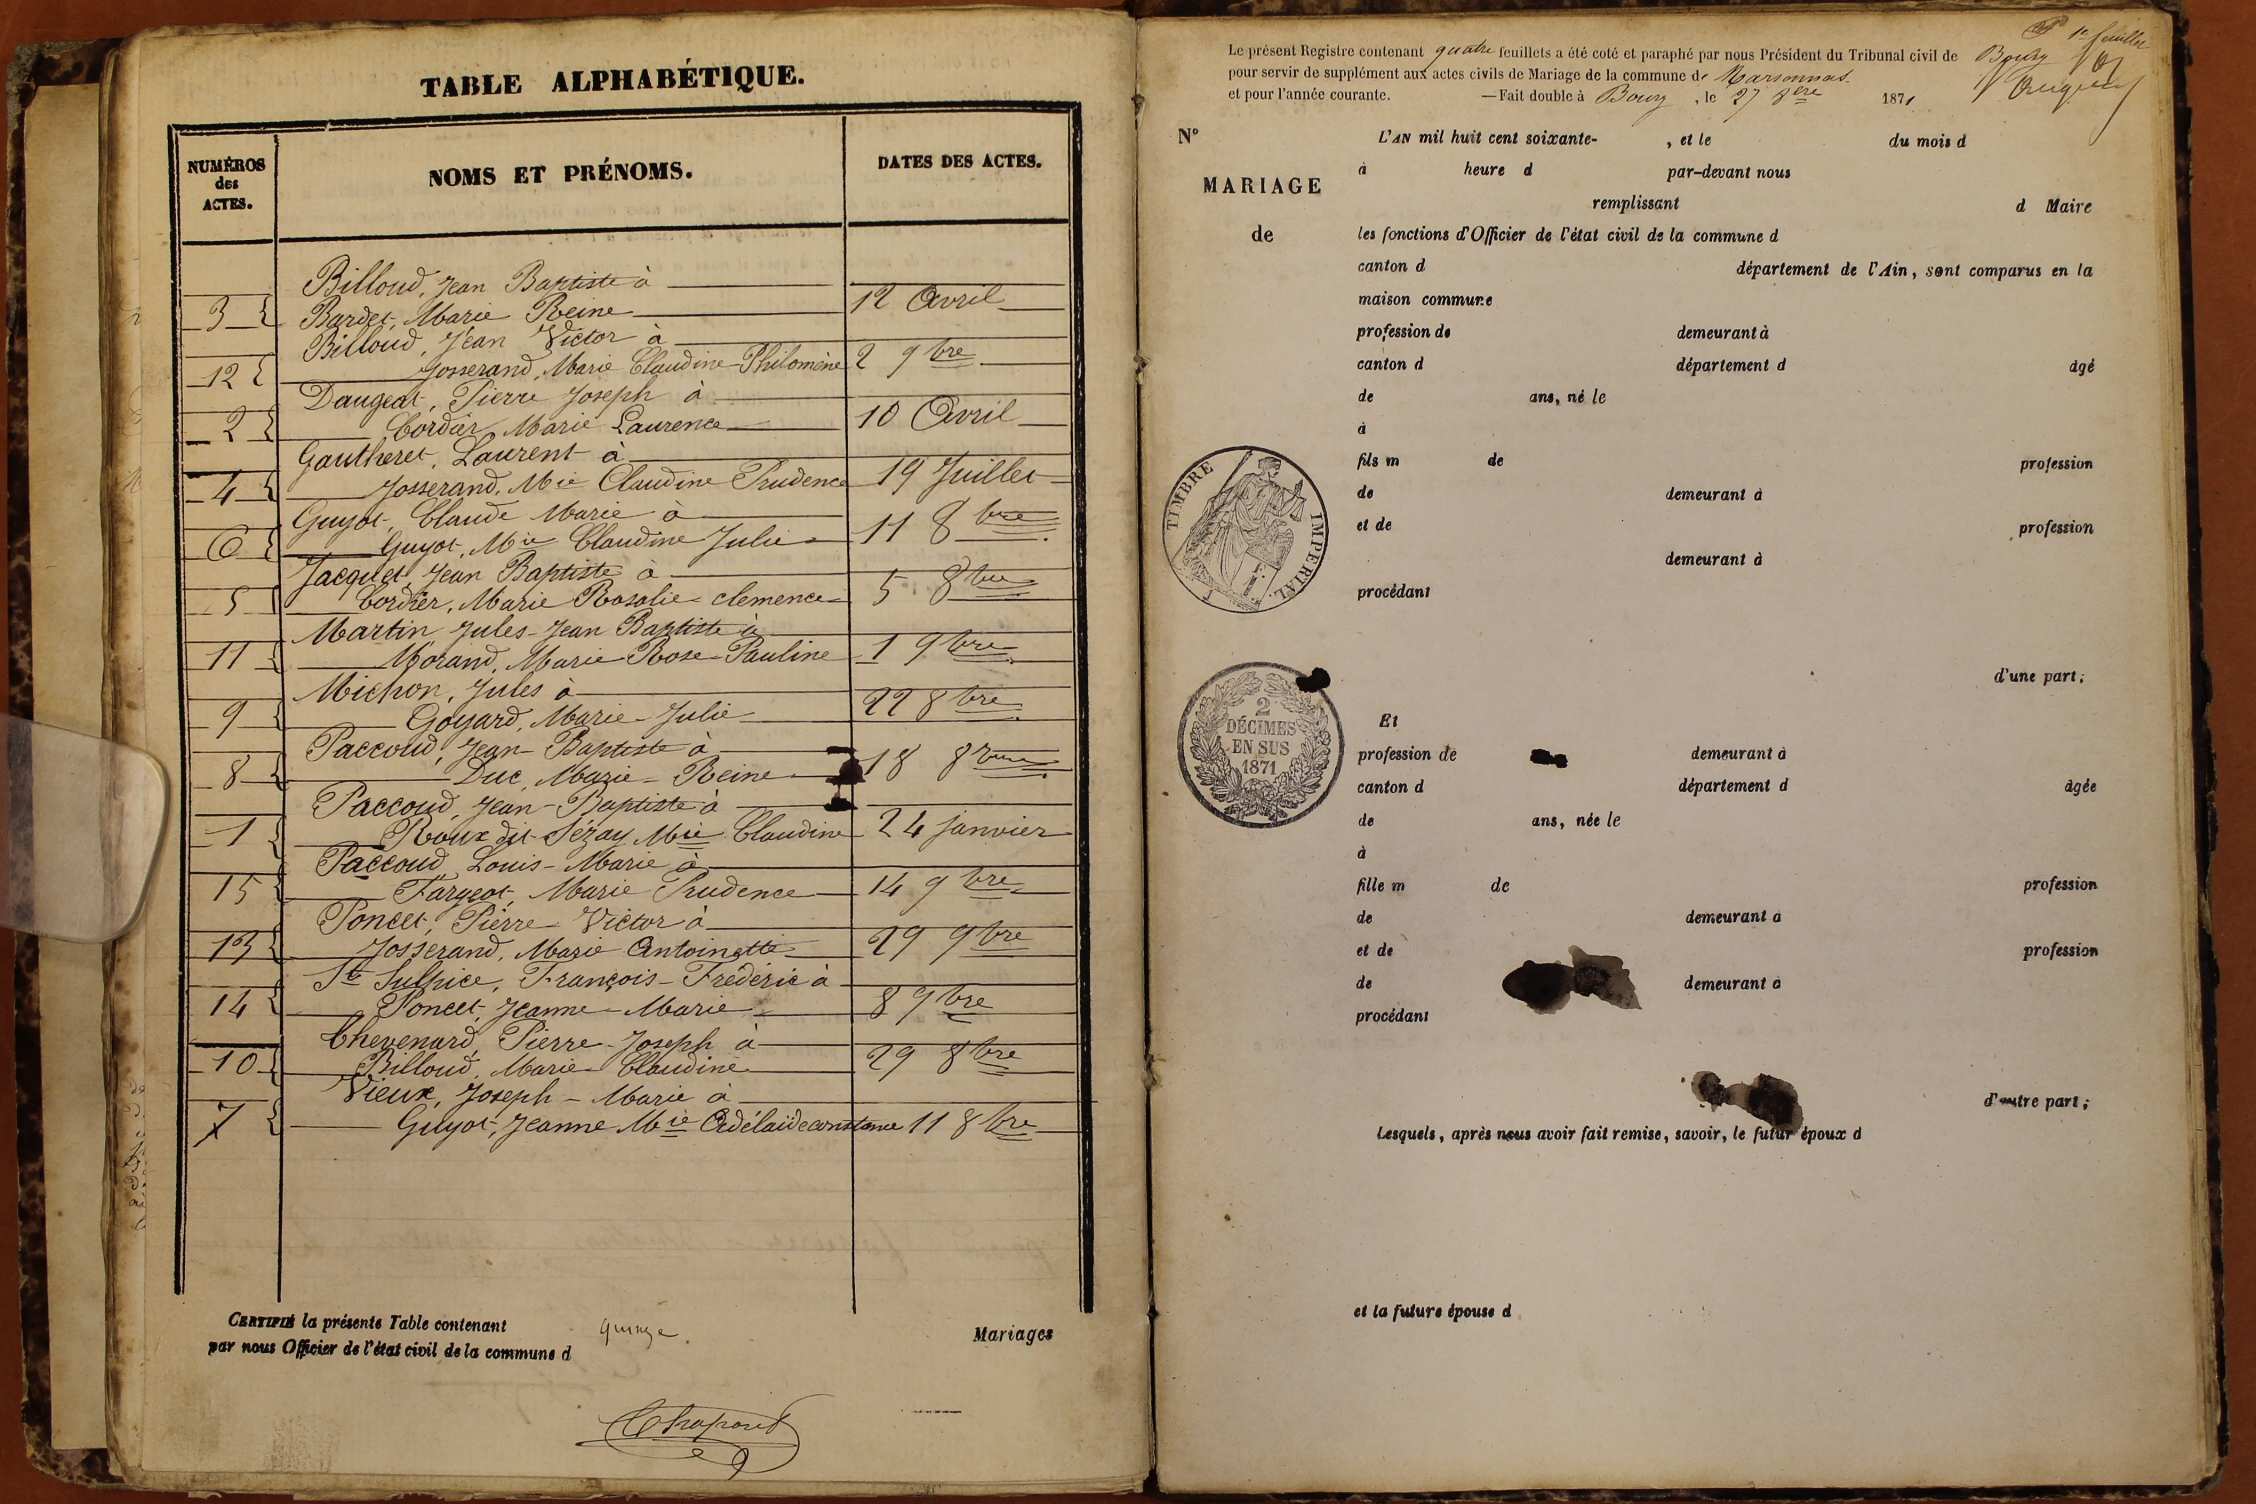 TABLE ALPHABÉTIQUE.
NUMÉROS des ACTES.
NOMS ET PRÉNOMS.
DATES DES ACTES.
Billoud, Jean Baptiste à
3 Bardet, Marie Reine 12 Avril
Billoud, Jean Victor à
12 Josserand, Marie Claudine Philomène 2 9bre
Daugeat, Pierre Joseph à
2 Cordier, Marie Laurence 10 Avril
Gautheret, Laurent à
4 Josserand, Mie Claudine Prudence 19 Juillet
Guyot, Claude Marie à
6 Guyot, Mie Claudine Julie 11 8bre
Jacquet, Jean Baptiste à
5 Cordier, Marie Rosalie clemence 5 8bre
Martin, Jules Jean Baptiste à
11 Morand, Marie Rose Pauline 1 9bre
Michon, Jules à
9 Goyard, Marie Julie 22 8bre
Paccoud, Jean Baptiste à
8 Duc, Marie Reine 18 8bre
Paccoud, Jean Baptiste à
1 Roux dit Sézay Mie Claudine 24 janvier
Paccoud, Louis Marie à
15 Fargeot, Marie Prudence 14 9bre
Poncet, Pierre Victor à
13 Josserand, Marie Antoinette 29 9bre
St Sulpice, François Frédéric à
14 Poncet, Jeanne Marie 8 9bre
Chevenard, Pierre Joseph à
10 Billoud, Marie Claudine 29 8bre
Vieux, Joseph Marie à
7 Guyot, Jeanne Mie Adélaïde constance 11 8bre
CERTIFIÉ la présente Table contenant quinze Mariages
par nous Officier de l'état civil de la commune d
1er feuillet
Le présent Registre contenant quatre feuillets a été coté et paraphé par nous Président du Tribunal civil de Bourg
pour servir de supplément aux actes civils de Mariage de la commune de Marsonnas
et pour l'année courante. —Fait double à Bourg, le 27 8bre 1871
N° L'AN mil huit cent soixante- , et le du mois d
à heure d par-devant nous
MARIAGE
remplissant d Maire
de les fonctions d'Officier de l'état civil de la commune d
canton d département de l'Ain, sont comparus en la
maison commune
profession de demeurant à
canton d département d âgé
de ans, né le
à
fils m de profession
de demeurant à
et de profession
demeurant à
procédant
TIMBRE IMPERIAL.
d'une part;
2 DÉCIMES EN SUS 1871
Et
profession de demeurant à
canton d département d âgée
de ans, née le
à
fille m de profession
de demeurant à
et de profession
de demeurant à
procédant
d'autre part;
Lesquels, après nous avoir fait remise, savoir, le futur époux d
et la future épouse d